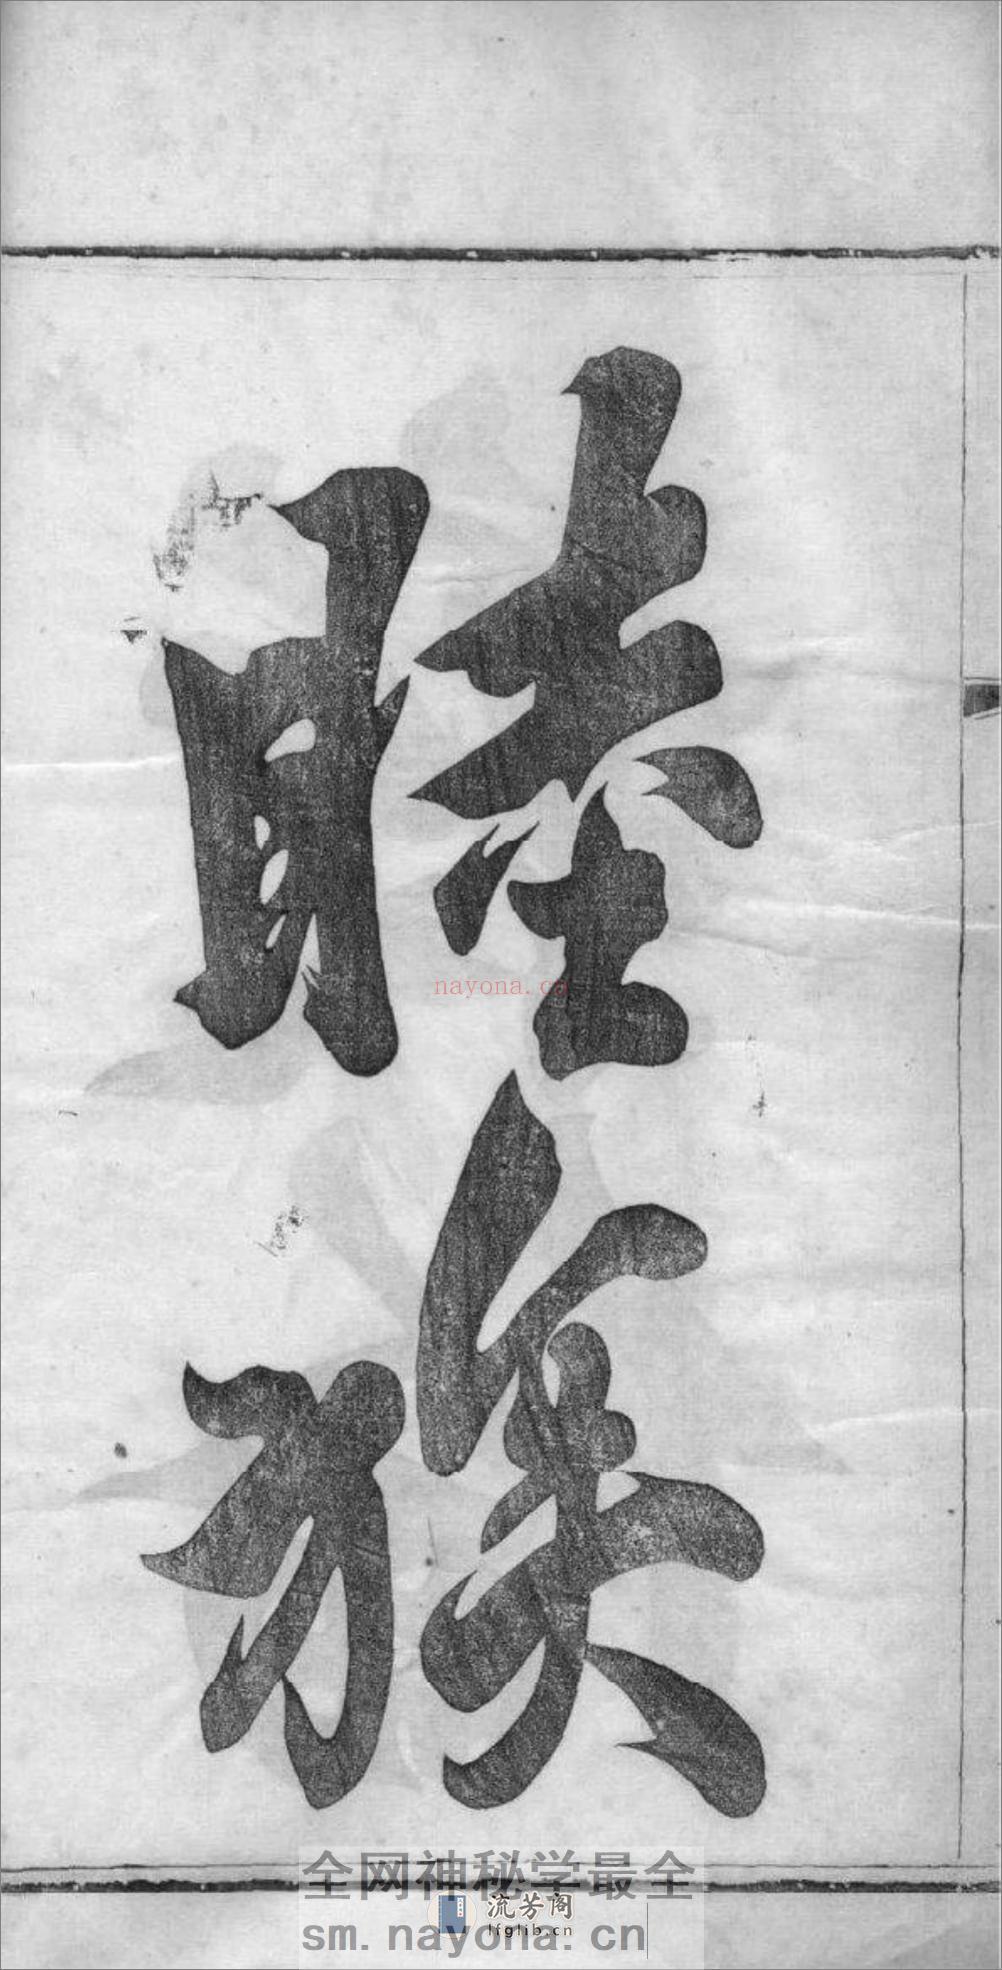 睦族
nayona.cn
全网神秘学最全
流芳阁
lfglib.cn
sm.nayona.cn